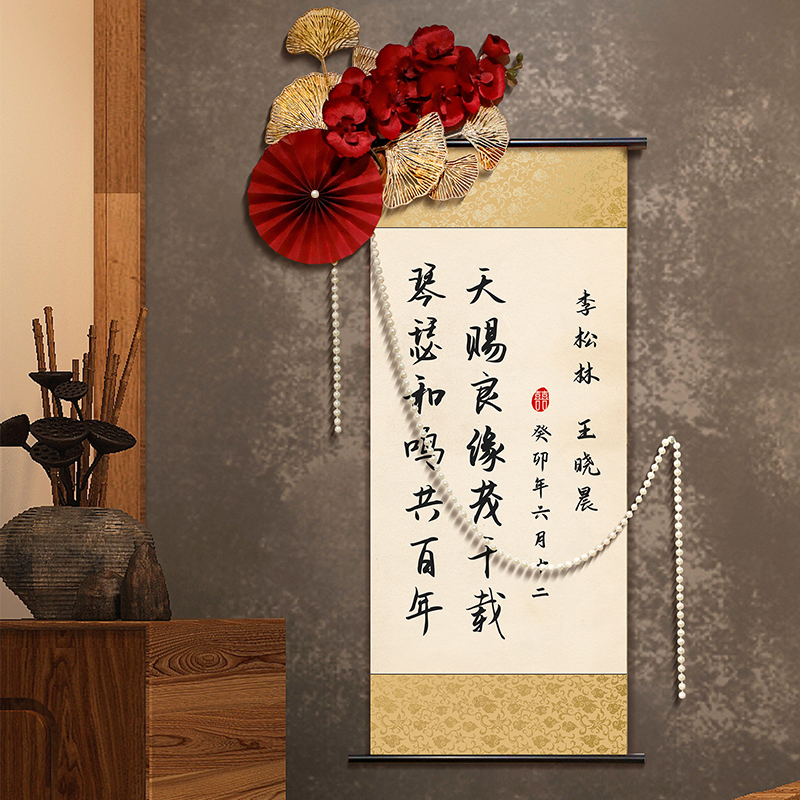 李松林 王晓晨
囍
癸卯年六月二
天賜良缘茂千载
琴瑟和鸣共百年